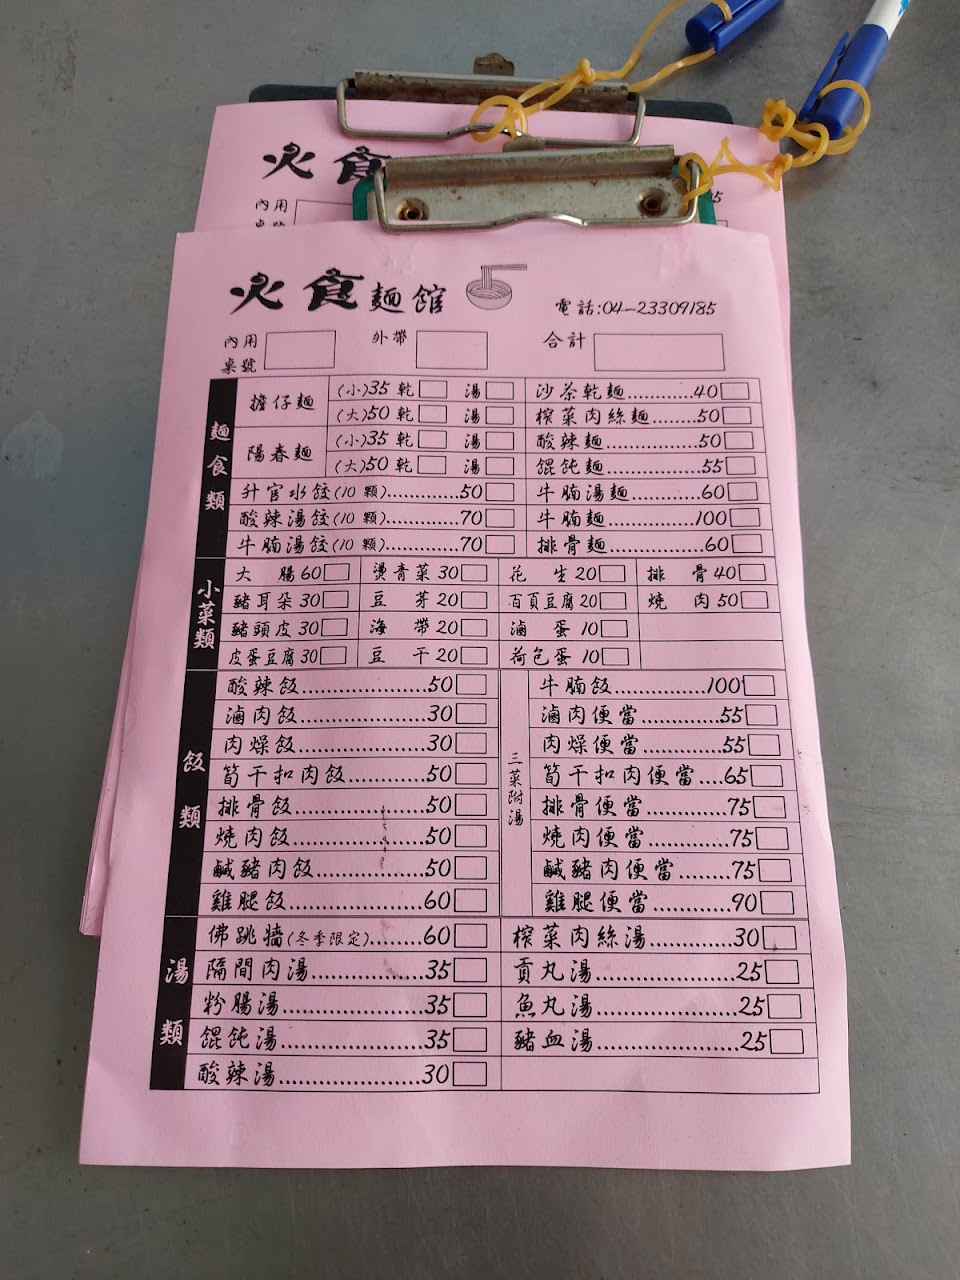 火食
內用
5
火食麵館
電話:04-23309185
內用桌號
外帶
合計
麵食類
擔仔麵 (小)35 乾 湯
(大)50 乾 湯
陽春麵 (小)35 乾 湯
(大)50 乾 湯
升官水餃(10 顆)............50
酸辣湯餃(10 顆)............70
牛腩湯餃(10 顆)............70
沙茶乾麵............40
榨菜肉絲麵.........50
酸辣麵...............50
餛飩麵...............55
牛腩湯麵............60
牛腩麵...............100
排骨麵...............60
小菜類
大腸60 燙青菜30 花生20 排骨40
豬耳朵30 豆芽20 百頁豆腐20 燒肉50
豬頭皮30 海帶20 滷蛋10
皮蛋豆腐30 豆干20 荷包蛋10
飯類
酸辣飯..................50
滷肉飯..................30
肉燥飯..................30
筍干扣肉飯............50
排骨飯..................50
燒肉飯..................50
鹹豬肉飯...............50
雞腿飯..................60
三菜附湯
牛腩飯............100
滷肉便當............55
肉燥便當............55
筍干扣肉便當....65
排骨便當............75
燒肉便當............75
鹹豬肉便當.........75
雞腿便當............90
湯類
佛跳牆(冬季限定).........60
隔間肉湯...............35
粉腸湯..................35
餛飩湯..................35
酸辣湯..................30
榨菜肉絲湯............30
貢丸湯..................25
魚丸湯..................25
豬血湯..................25